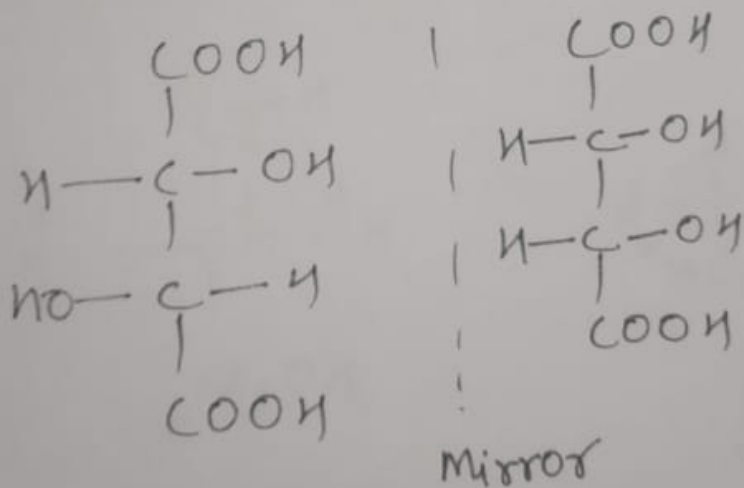 COOH
H — C — OH
HO — C — H
COOH
COOH
H — C — OH
H — C — OH
COOH
Mirror